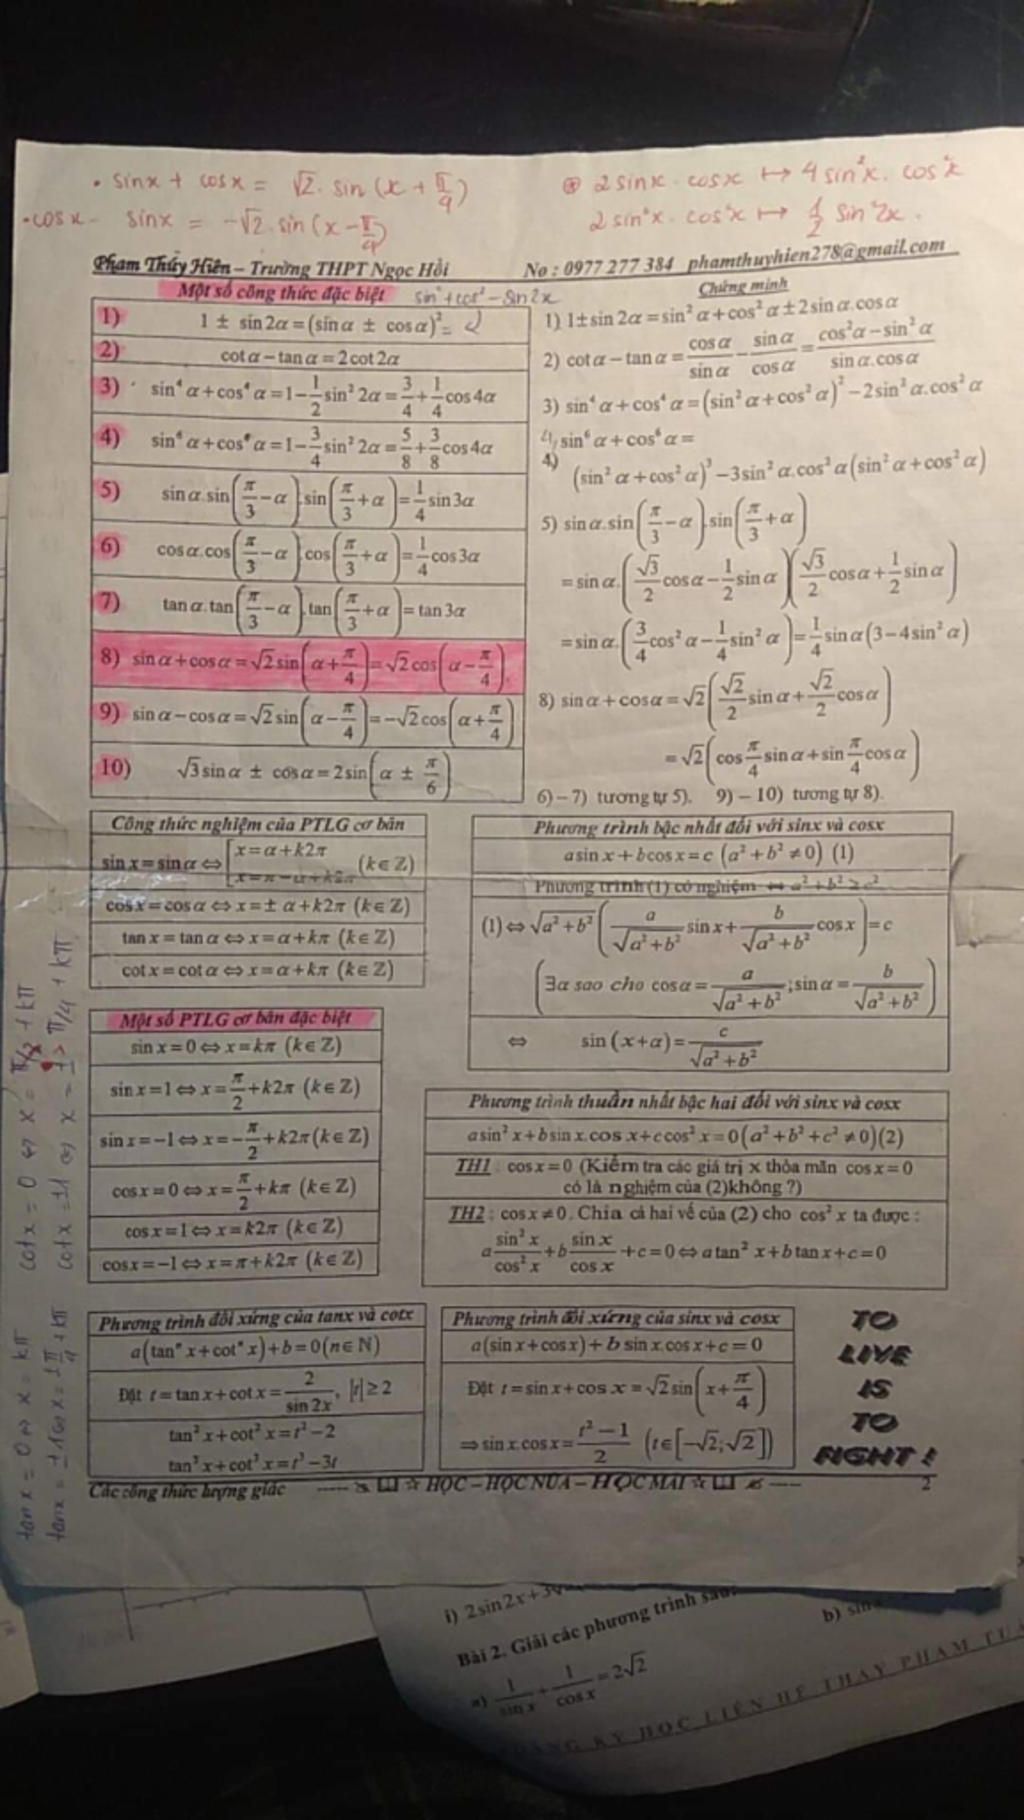 • sinx + cosx = √2. sin (x + π/4)
• cosx - sinx = -√2. sin (x - π/4)
⊛ 2 sinx. cosx ↦ 4 sin²x. cos²x
2 sin²x. cos²x ↦ 1/2 sin²2x.
Phạm Thúy Hiên – Trường THPT Ngọc Hồi No : 0977 277 384 phamthuyhien278@gmail.com
Một số công thức đặc biệt
1) 1 ± sin 2α = (sin α ± cos α)²
2) cot α − tan α = 2 cot 2α
3) sin⁴ α + cos⁴ α = 1 − 1/2 sin² 2α = 3/4 + 1/4 cos 4α
4) sin⁶ α + cos⁶ α = 1 − 3/4 sin² 2α = 5/8 + 3/8 cos 4α
5) sin α. sin(π/3 − α). sin(π/3 + α) = 1/4 sin 3α
6) cos α. cos(π/3 − α). cos(π/3 + α) = 1/4 cos 3α
7) tan α. tan(π/3 − α). tan(π/3 + α) = tan 3α
8) sin α + cos α = √2 sin(α + π/4) = √2 cos(α − π/4).
9) sin α − cos α = √2 sin(α − π/4) = −√2 cos(α + π/4)
10) √3 sin α ± cos α = 2 sin(α ± π/6)
Chứng minh
1) 1 ± sin 2α = sin² α + cos² α ± 2 sin α. cos α
2) cot α − tan α = cos α/sin α − sin α/cos α = (cos² α − sin² α)/(sin α. cos α)
3) sin⁴ α + cos⁴ α = (sin² α + cos² α)² − 2 sin² α. cos² α
4) sin⁶ α + cos⁶ α =
4) (sin² α + cos² α)³ − 3 sin² α. cos² α (sin² α + cos² α)
5) sin α. sin(π/3 − α). sin(π/3 + α)
= sin α. (√3/2 cos α − 1/2 sin α)(√3/2 cos α + 1/2 sin α)
= sin α. (3/4 cos² α − 1/4 sin² α) = 1/4 sin α (3 − 4 sin² α)
8) sin α + cos α = √2 (√2/2 sin α + √2/2 cos α)
= √2 (cos π/4 sin α + sin π/4 cos α)
6) – 7) tương tự 5). 9) – 10) tương tự 8).
Công thức nghiệm của PTLG cơ bản
sin x = sin α ⇔ [x = α + k2π
x = π − α + k2π (k ∈ ℤ)
cos x = cos α ⇔ x = ± α + k2π (k ∈ ℤ)
tan x = tan α ⇔ x = α + kπ (k ∈ ℤ)
cot x = cot α ⇔ x = α + kπ (k ∈ ℤ)
Phương trình bậc nhất đối với sinx và cosx
a sin x + b cos x = c (a² + b² ≠ 0) (1)
Phương trình (1) có nghiệm ⇔ a² + b² ≥ c²
(1) ⇔ √(a² + b²) (a/√(a² + b²) sin x + b/√(a² + b²) cos x) = c
(∃α sao cho cos α = a/√(a² + b²); sin α = b/√(a² + b²))
⇔ sin (x + α) = c/√(a² + b²)
Một số PTLG cơ bản đặc biệt
sin x = 0 ⇔ x = kπ (k ∈ ℤ)
sin x = 1 ⇔ x = π/2 + k2π (k ∈ ℤ)
sin x = −1 ⇔ x = −π/2 + k2π (k ∈ ℤ)
cos x = 0 ⇔ x = π/2 + kπ (k ∈ ℤ)
cos x = 1 ⇔ x = k2π (k ∈ ℤ)
cos x = −1 ⇔ x = π + k2π (k ∈ ℤ)
Phương trình thuần nhất bậc hai đối với sinx và cosx
a sin² x + b sin x. cos x + c cos² x = 0 (a² + b² + c² ≠ 0) (2)
TH1: cos x = 0 (Kiểm tra các giá trị x thỏa mãn cos x = 0
có là nghiệm của (2) không ?)
TH2: cos x ≠ 0. Chia cả hai vế của (2) cho cos² x ta được :
a sin² x/cos² x + b sin x/cos x + c = 0 ⇔ a tan² x + b tan x + c = 0
Phương trình đối xứng của tanx và cotx
a(tanⁿ x + cotⁿ x) + b = 0 (n ∈ ℕ)
Đặt t = tan x + cot x = 2/sin 2x, |t| ≥ 2
tan² x + cot² x = t² − 2
tan³ x + cot³ x = t³ − 3t
Phương trình đối xứng của sinx và cosx
a(sin x + cos x) + b sin x. cos x + c = 0
Đặt t = sin x + cos x = √2 sin(x + π/4)
⇒ sin x. cos x = (t² − 1)/2 (t ∈ [−√2; √2])
TO
LIVE
IS
TO
FIGHT !
Các công thức lượng giác ----- ☆ HỌC – HỌC NỮA – HỌC MÃI ☆ ---- 2
cot x = 0 ⇔ x = π/2 + kπ
cot x = ±1 ⇔ x = ± π/4 + kπ
tan x = 0 ⇔ x = kπ
tan x = ±1 ⇔ x = ± π/4 + kπ
i) 2 sin 2x + 3
Bài 2. Giải các phương trình sau:
a) 1/sin x + 1/cos x = 2√2
b) sin
KÝ HỌC LIÊN HỆ THẦY PHẠM